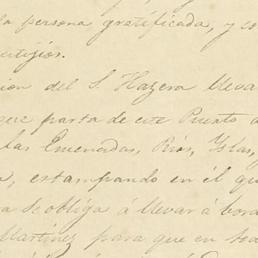 la persona gratificada, y co
ion del S. Hazera llevar
parta de este Puerto á
las Ensenadas, Rios, Yslas,
, estampando en él qu
a se obliga á llevar á bord
Martinez para que en toda